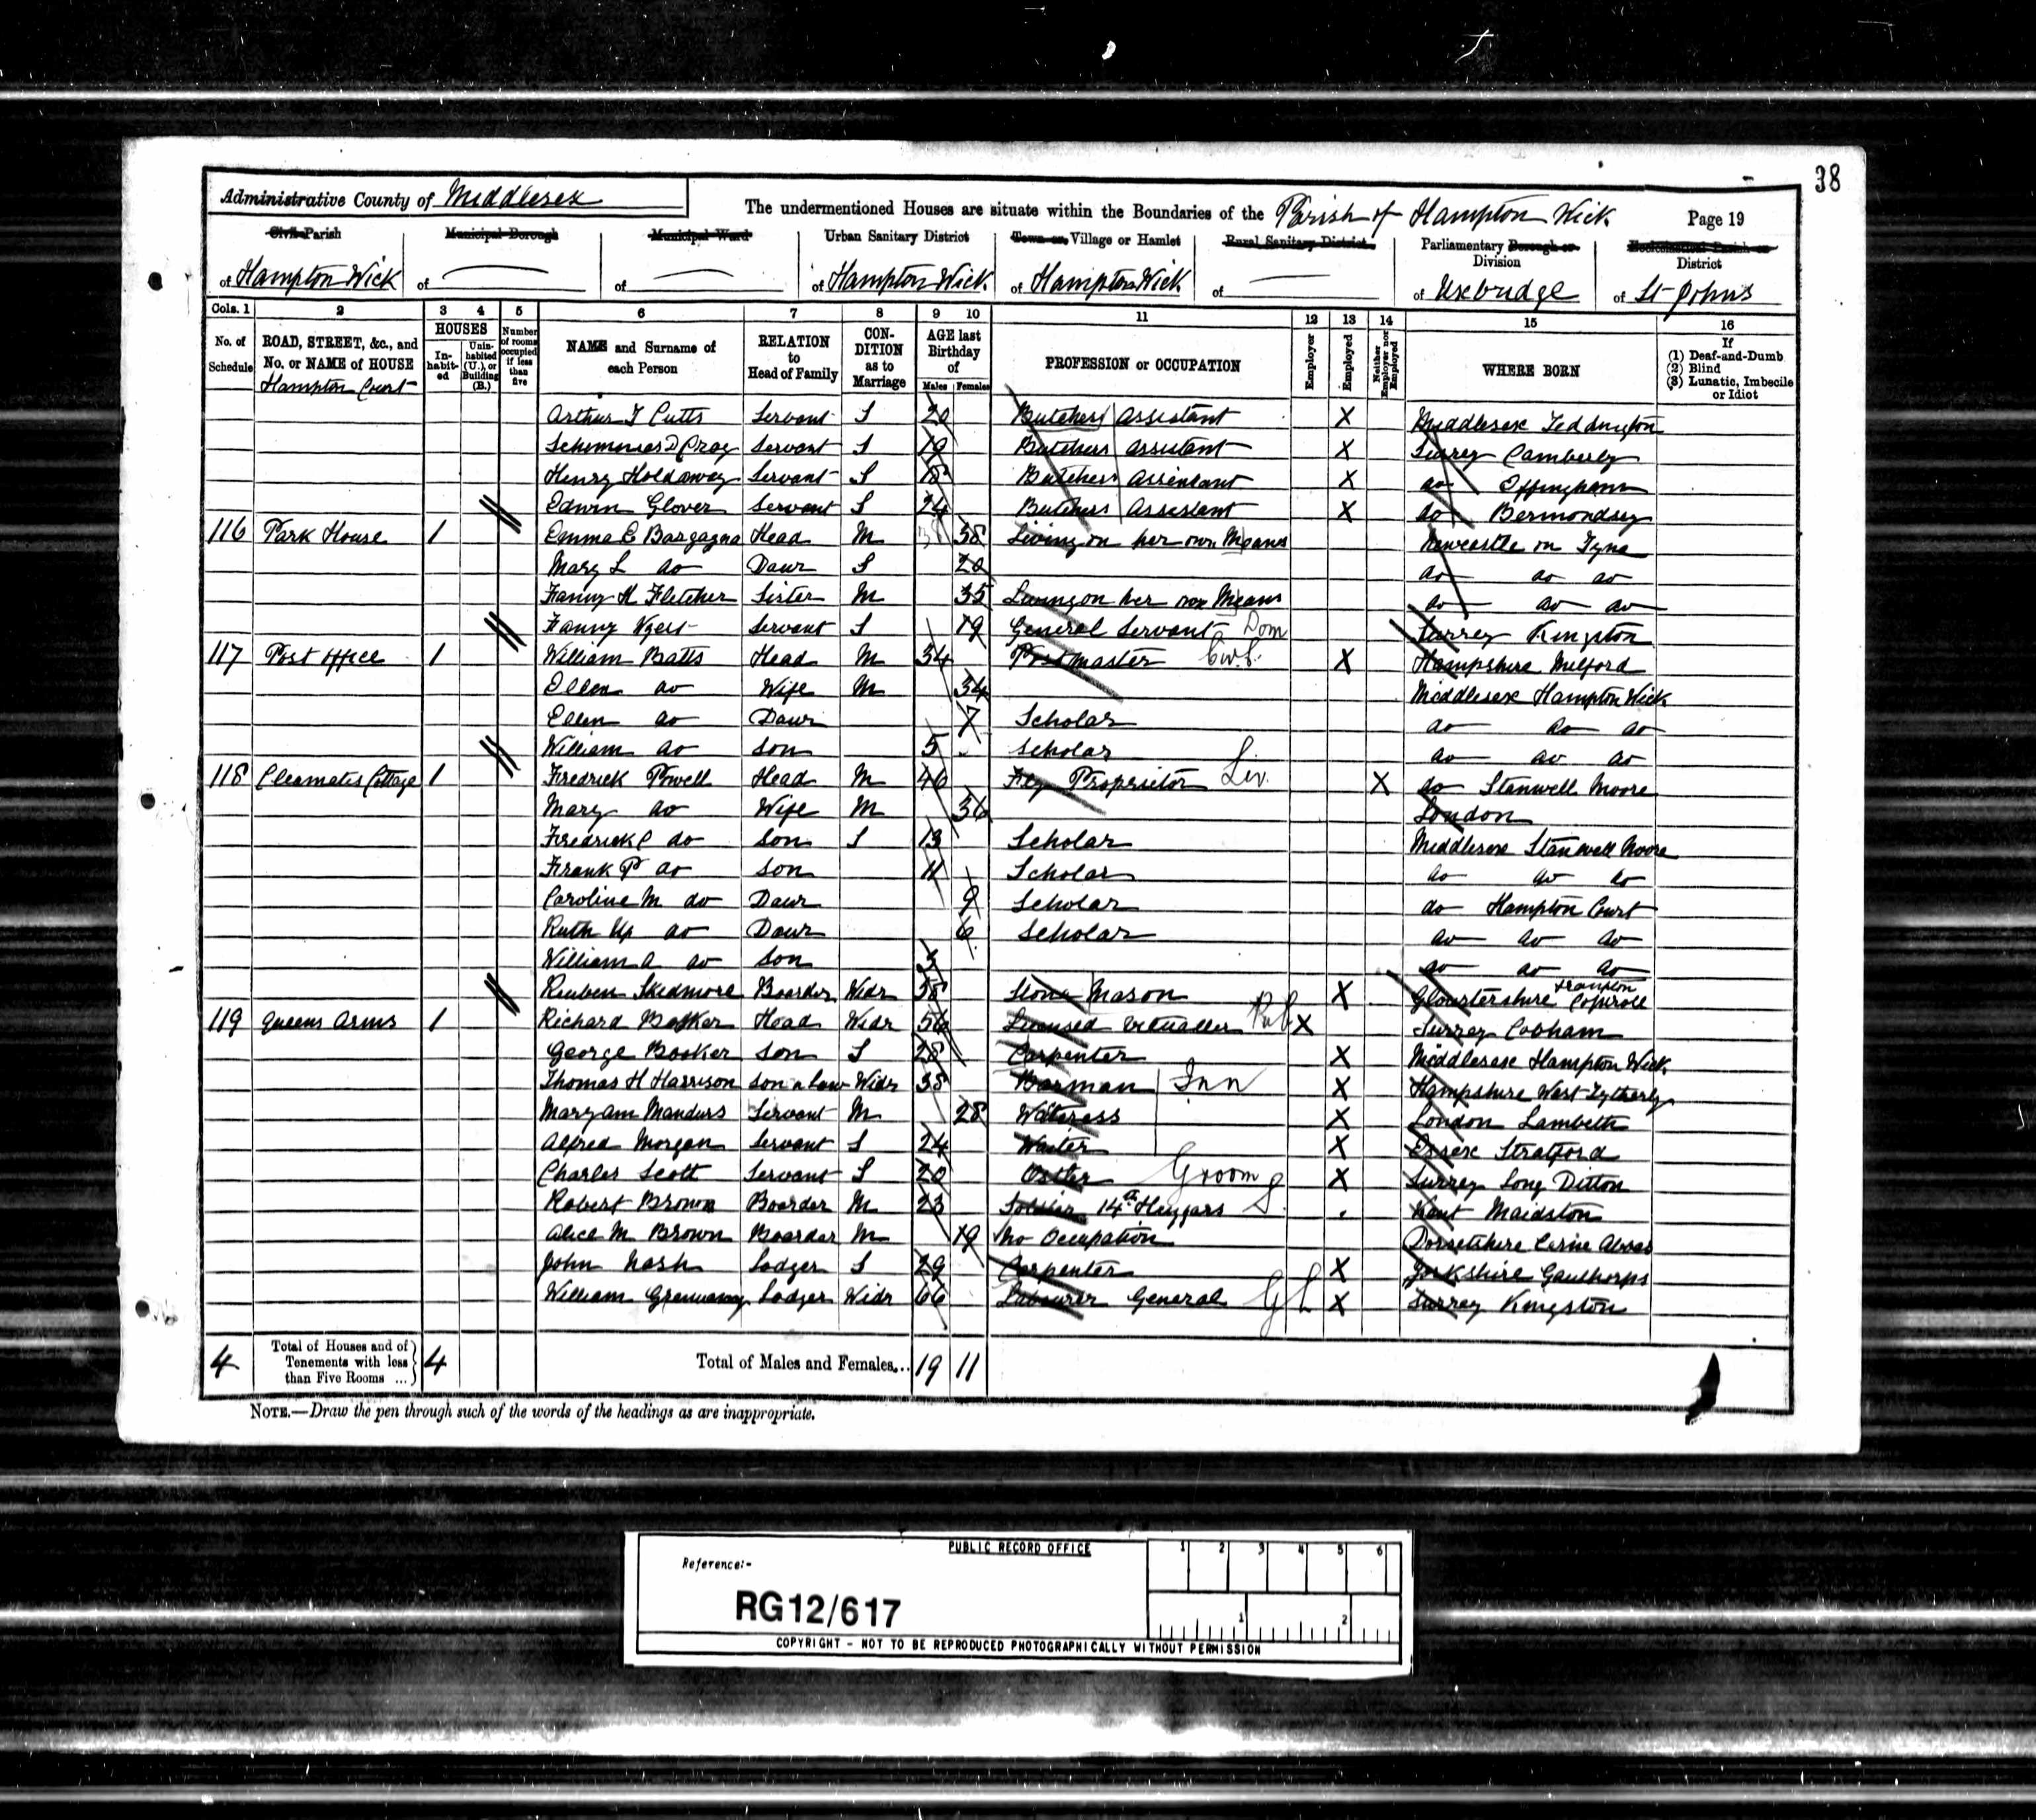 38
Administrative County of Middlesex
The undermentioned Houses are situate within the Boundaries of the Parish of Hampton Wick Page 19
Civil Parish of Hampton Wick
Municipal Borough of
Municipal Ward of
Urban Sanitary District of Hampton Wick
Town or Village or Hamlet of Hampton Wick
Rural Sanitary District of
Parliamentary Borough or Division of Uxbridge
Ecclesiastical Parish or District of St Johns
Cols. 1 2 3 4 5 6 7 8 9 10 11 12 13 14 15 16
No. of Schedule
ROAD, STREET, &c., and No. or NAME of HOUSE
HOUSES
Inhabited
Uninhabited (U.), or Building (B.)
Number of rooms occupied if less than five
NAME and Surname of each Person
RELATION to Head of Family
CONDITION as to Marriage
AGE last Birthday of
Males Females
PROFESSION or OCCUPATION
Employer
Employed
Neither Employer nor Employed
WHERE BORN
If (1) Deaf-and-Dumb (2) Blind (3) Lunatic, Imbecile or Idiot
Hampton Court
Arthur T Cutts Servant S 20 Butchers Assistant X Middlesex Teddington
Servant S 19 Butchers Assistant X Surrey Camberly
Henry Holdaway Servant S 18 Butchers Assistant X do Effingham
Edwin Glover Servant S 24 Butchers Assistant X do Bermondsey
116 Park House 1 Emma E Bargagna Head M 38 Living on her own Means Newcastle on Tyne
Mary L do Daur S 20 do do do
Fanny H Fletcher Sister M 35 Living on her own Means do do do
Fanny Servant S 19 General Servant Dom Surrey Kingston
117 Post office 1 William Batts Head M 34 Postmaster Civ.S. X Hampshire Milford
Ellen do Wife M 34 Middlesex Hampton Wick
Ellen do Daur 7 Scholar do do do
William do Son 5 Scholar do do do
118 Cleamates Cottage 1 Fredrick Powell Head M 46 Fly Proprietor Liv. X do Stanwell Moore
Mary do Wife M 36 London
Fredrick C do Son S 13 Scholar Middlesex Stanwell Moore
Frank P do Son 11 Scholar do do do
Caroline M do Daur 9 Scholar do Hampton Court
Ruth do Daur 6 Scholar do do do
William A do Son 3 do do do
Reuben Skidmore Boarder Widr 58 Stone Mason X Gloustershire Frampton
119 Queens Arms 1 Richard Booker Head Widr 56 Licensed Victualler Pub X Surrey Cobham
George Booker Son S 28 Carpenter X Middlesex Hampton Wick
Thomas H Harrison Son n Law Widr 38 Barman Inn X Hampshire West Tytherly
Maryann Manders Servant M 28 Waitress X London Lambeth
Alfred Morgan Servant S 24 Waiter X Essex Stratford
Charles Scott Servant S 20 Ostler Groom X Surrey Long Ditton
Robert Brown Boarder M 23 Soldier 14th Huzzars S. Kent Maidston
Alice M Brown Boarder M 19 No Occupation Dorsetshire Cerne Abbas
John Nash Lodger S 29 Carpenter X Yorkshire Gauthorps
William Greenaway Lodger Widr 66 Labourer General GL X Surrey Kingston
4 Total of Houses and of Tenements with less than Five Rooms ... 4 Total of Males and Females... 19 11
NOTE.—Draw the pen through such of the words of the headings as are inappropriate.
PUBLIC RECORD OFFICE
1 2 3 4 5 6
Reference:-
RG12/617
1 2
COPYRIGHT - NOT TO BE REPRODUCED PHOTOGRAPHICALLY WITHOUT PERMISSION